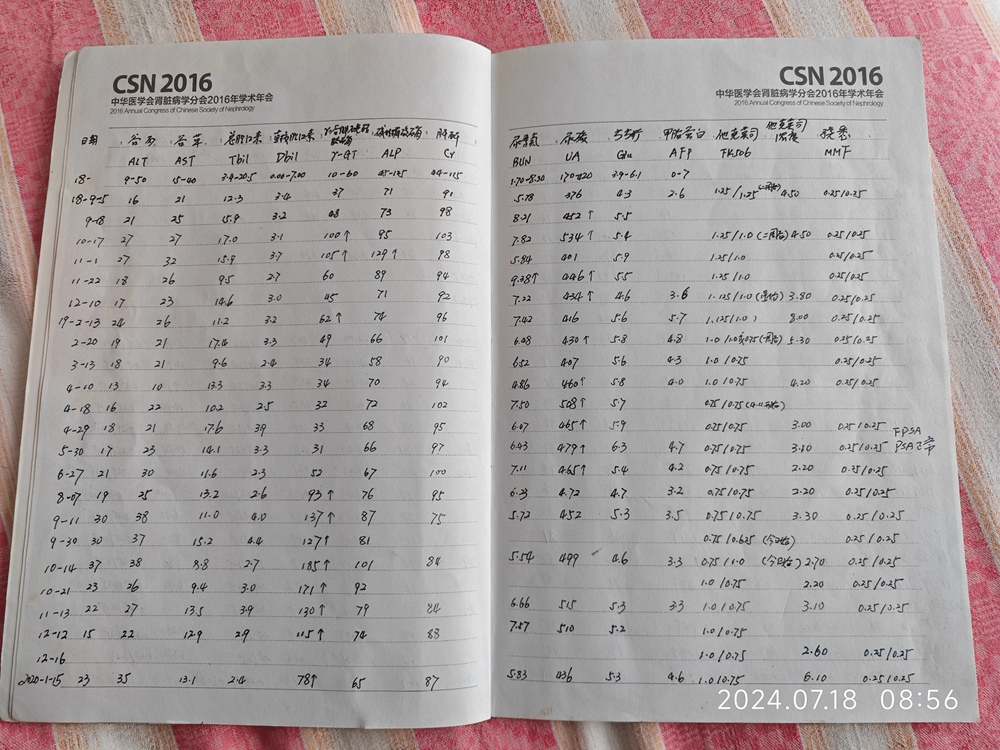 CSN 2016
中华医学会肾脏病学分会2016年学术年会
2016 Annual Congress of Chinese Society of Nephrology
日期 谷丙 谷草 总胆红素 直接胆红素 肌酐
ALT AST Tbil Dbil γ-GT ALP Cr
18- 9-50 15-40 3.4-20.5 0.00-7.00 10-60 45-125 44-115
18-9-5 16 21 12.3 3.4 37 71 91
9-18 21 25 15.9 3.2 48 73 98
10-17 27 27 17.0 3.1 100↑ 95 103
11-1 27 32 15.9 3.7 105↑ 129↑ 98
11-22 18 26 9.5 2.7 60 89 94
12-10 17 23 14.6 3.0 45 71 92
19-2-13 24 26 11.2 3.2 62↑ 74 96
2-20 19 21 17.4 3.3 49 66 101
3-13 18 21 9.6 2.4 34 58 90
4-10 13 10 13.3 3.3 34 70 94
4-18 16 22 10.2 2.5 32 72 102
4-29 18 21 17.6 3.9 33 68 95
5-30 17 23 14.1 3.3 31 66 97
6-27 21 30 11.6 2.3 52 67 100
8-07 19 25 13.2 2.6 93↑ 76 95
9-11 30 38 11.0 4.0 137↑ 87 75
9-30 30 37 15.2 4.4 127↑ 81
10-14 37 38 8.8 2.7 185↑ 101 84
10-21 23 26 9.4 3.0 171↑ 92
11-13 22 27 13.5 3.9 130↑ 79 84
12-12 15 22 12.9 2.9 115↑ 74 88
12-16
2020-1-15 23 35 13.1 2.4 78↑ 65 87
CSN 2016
中华医学会肾脏病学分会2016年学术年会
2016 Annual Congress of Chinese Society of Nephrology
尿素氮 尿酸 甲胎蛋白 他克莫司 他克莫司浓度 骁悉
BUN UA Glu AFP FK506 MMF
1.70-8.30 170-420 3.9-6.1 0-7
5.78 376 4.3 2.6 1.25/1.25 4.50 0.25/0.25
8.21 452↑ 5.5
7.82 534↑ 5.4 1.25/1.0 4.50 0.25/0.25
5.84 401 5.9 1.25/1.0 0.25/0.25
9.38↑ 446↑ 5.5 1.25/1.0 0.25/0.25
7.22 434↑ 4.6 3.6 1.125/1.0 3.80 0.25/0.25
7.42 416 5.6 5.7 1.125/1.0 8.00 0.25/0.25
6.08 430↑ 5.8 4.8 1.0 5.30 0.25/0.25
6.52 407 5.6 4.3 1.0/0.75 0.25/0.25
4.86 460↑ 5.8 4.0 1.0/0.75 4.20 0.25/0.25
7.50 508↑ 5.7 0.75/0.75
6.07 465↑ 5.9 0.75/0.75 3.00 0.25/0.25 FPSA
6.43 479↑ 6.3 4.7 0.75/0.75 3.10 0.25/0.25 PSA正常
7.11 465↑ 5.4 4.2 0.75/0.75 2.20 0.25/0.25
6.23 472 4.7 3.2 0.75/0.75 2.20 0.25/0.25
5.72 452 5.3 3.5 0.75/0.75 3.30 0.25/0.25
0.75/0.625 (今日始) 0.25/0.25
5.54 499 4.6 3.3 0.75/1.0 (今日始) 2.70 0.25/0.25
1.0/0.75 2.20 0.25/0.25
6.66 515 5.3 3.3 1.0/0.75 3.10 0.25/0.25
7.87 510 5.2 1.0/0.75
1.0/0.75 2.60 0.25/0.25
5.83 436 5.3 4.6 1.0/0.75 6.10 0.25/0.25
2024.07.18 08:56